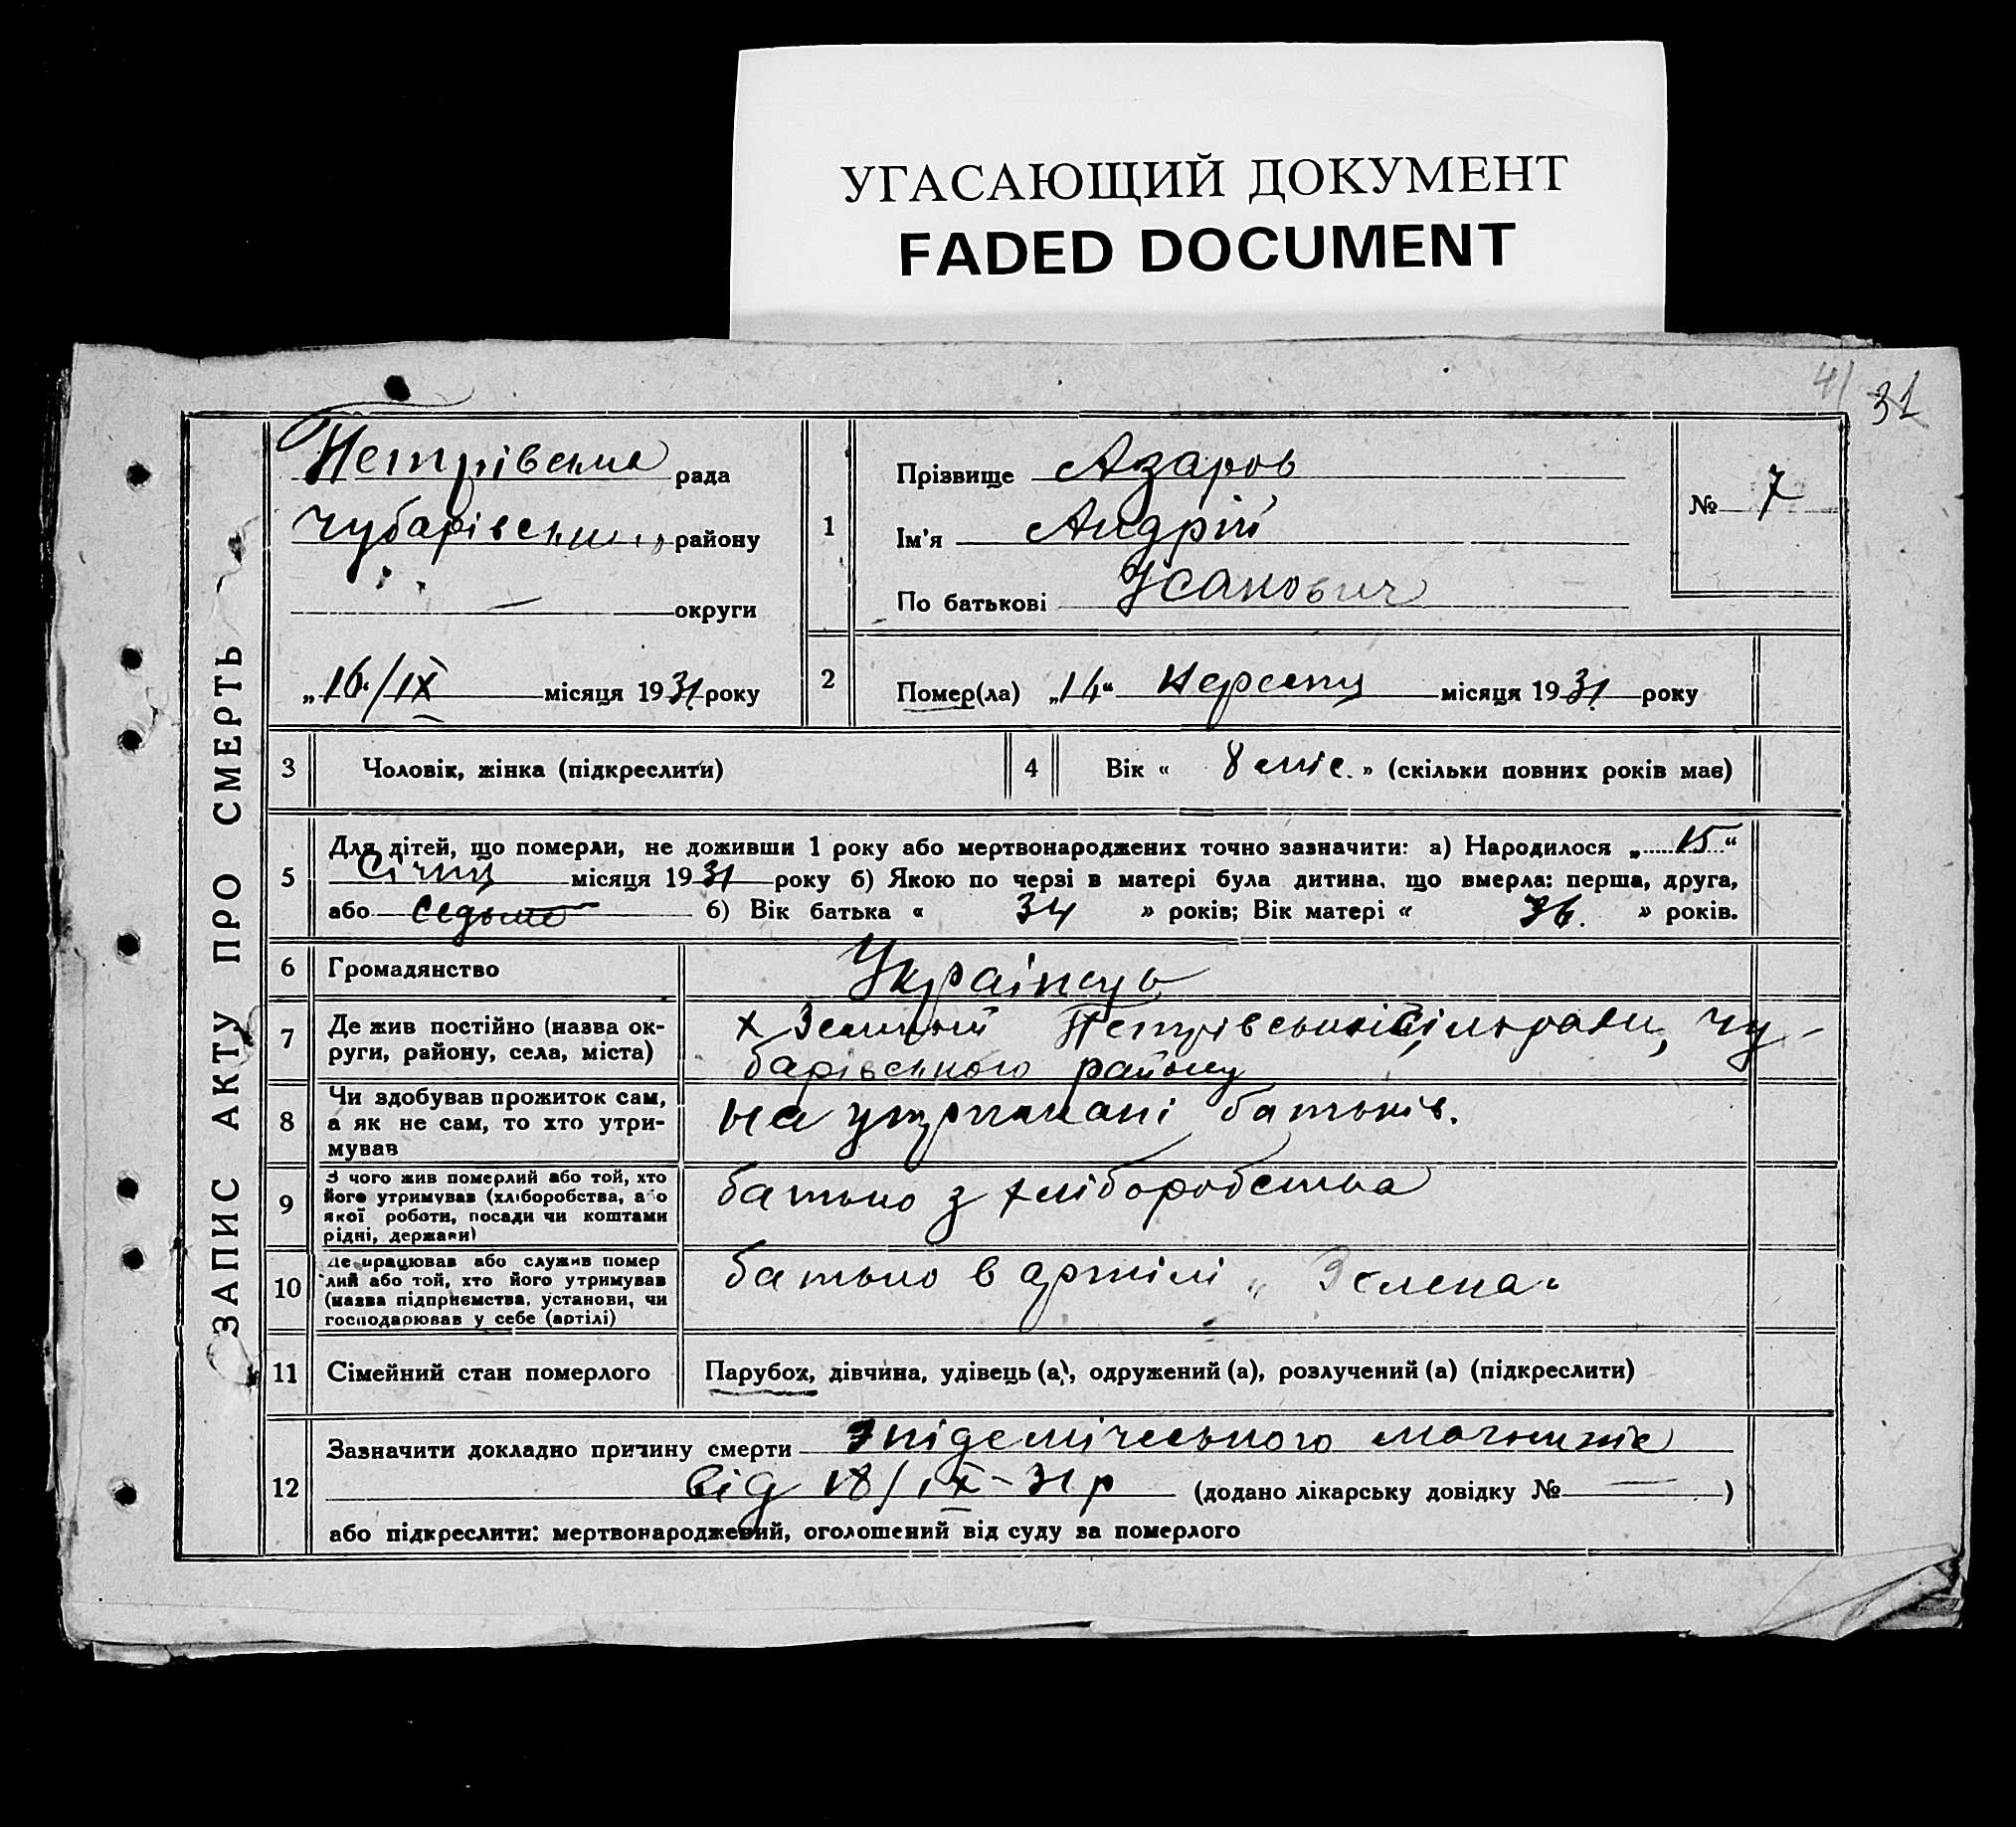 УГАСАЮЩИЙ ДОКУМЕНТ
FADED DOCUMENT
31
ЗАПИС АКТУ ПРО СМЕРТЬ
Петрівська рада
Чубарівського району
— округи
„16/IX місяця 1931 року
1
Прізвище Азаров
Ім'я Андрій
По батькові Усанович
№ 7
2
Помер(ла) „14“ Вересня місяця 1931 року
3
Чоловік, жінка (підкреслити)
4
Вік « 8 міс. » (скільки повних років має)
5
Для дітей, що померли, не доживши 1 року або мертвонароджених точно зазначити: а) Народилося „15“
Січня місяця 1931 року б) Якою по черзі в матері була дитина, що вмерла: перша, друга,
або седьмо б) Вік батька « 34 » років; Вік матері « 36. » років.
6
Громадянство
Українець
7
Де жив постійно (назва ок-
руги, району, села, міста)
х Зелений Петрівської Сільради, Чу-
барівського району
8
Чи здобував прожиток сам,
а як не сам, то хто утри-
мував
на утримані батьків.
9
З чого жив померлий або той, хто
його утримував (хліборобства, або
якої роботи, посади чи коштами
рідні, держави)
батько з хліборобства
10
Де працював або служив помер
лий або той, хто його утримував
(назва підприємства, установи, чи
господарював у себе (артілі)
батько в артілі „Зелена“
11
Сімейний стан померлого
Парубох, дівчина, удівець (а), одружений (а), розлучений (а) (підкреслити)
12
Зазначити докладно причину смерти эпідемічеського
від 18/IX-31 р (додано лікарську довідку № — )
або підкреслити: мертвонароджений, оголошений від суду за померлого